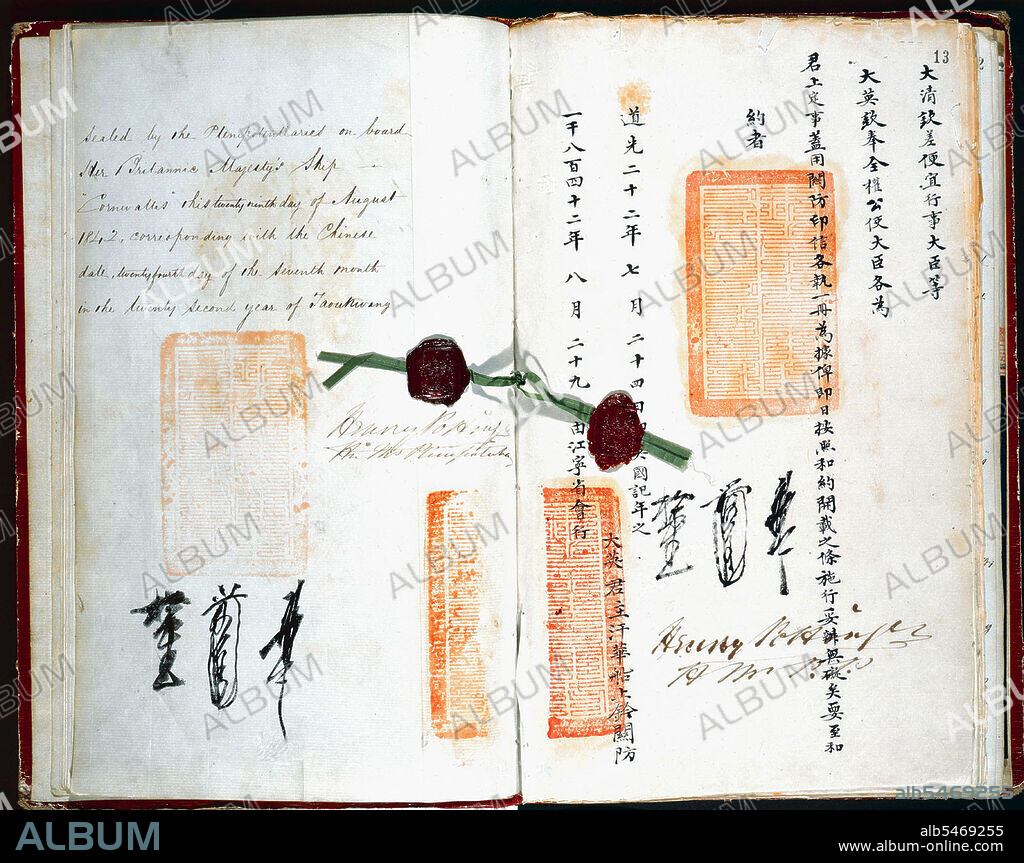 sealed by the Plenipotentiaries on board
Her Britannic Majesty's Ship
Cornwallis this twenty ninth day of August
1842, corresponding with the Chinese
date, twenty fourth day of the seventh month
in the twenty second year of Taoukwang
Henry Pottinger
13
大清欽差便宜行事大臣等
大英欽奉全權公使大臣各為
君上定事蓋用關防印信各執一冊為據俾即日按照和約開載之條施行妥辦無礙矣要至和
約者
道光二十二年七月二十四日即英國記年之
一千八百四十二年八月二十九日由江寧省會行
大英君主汗華船上鈐關防
Henry Pottinger
ALBUM
alb5469255
ALBUM
alb5469255
www.album-online.com